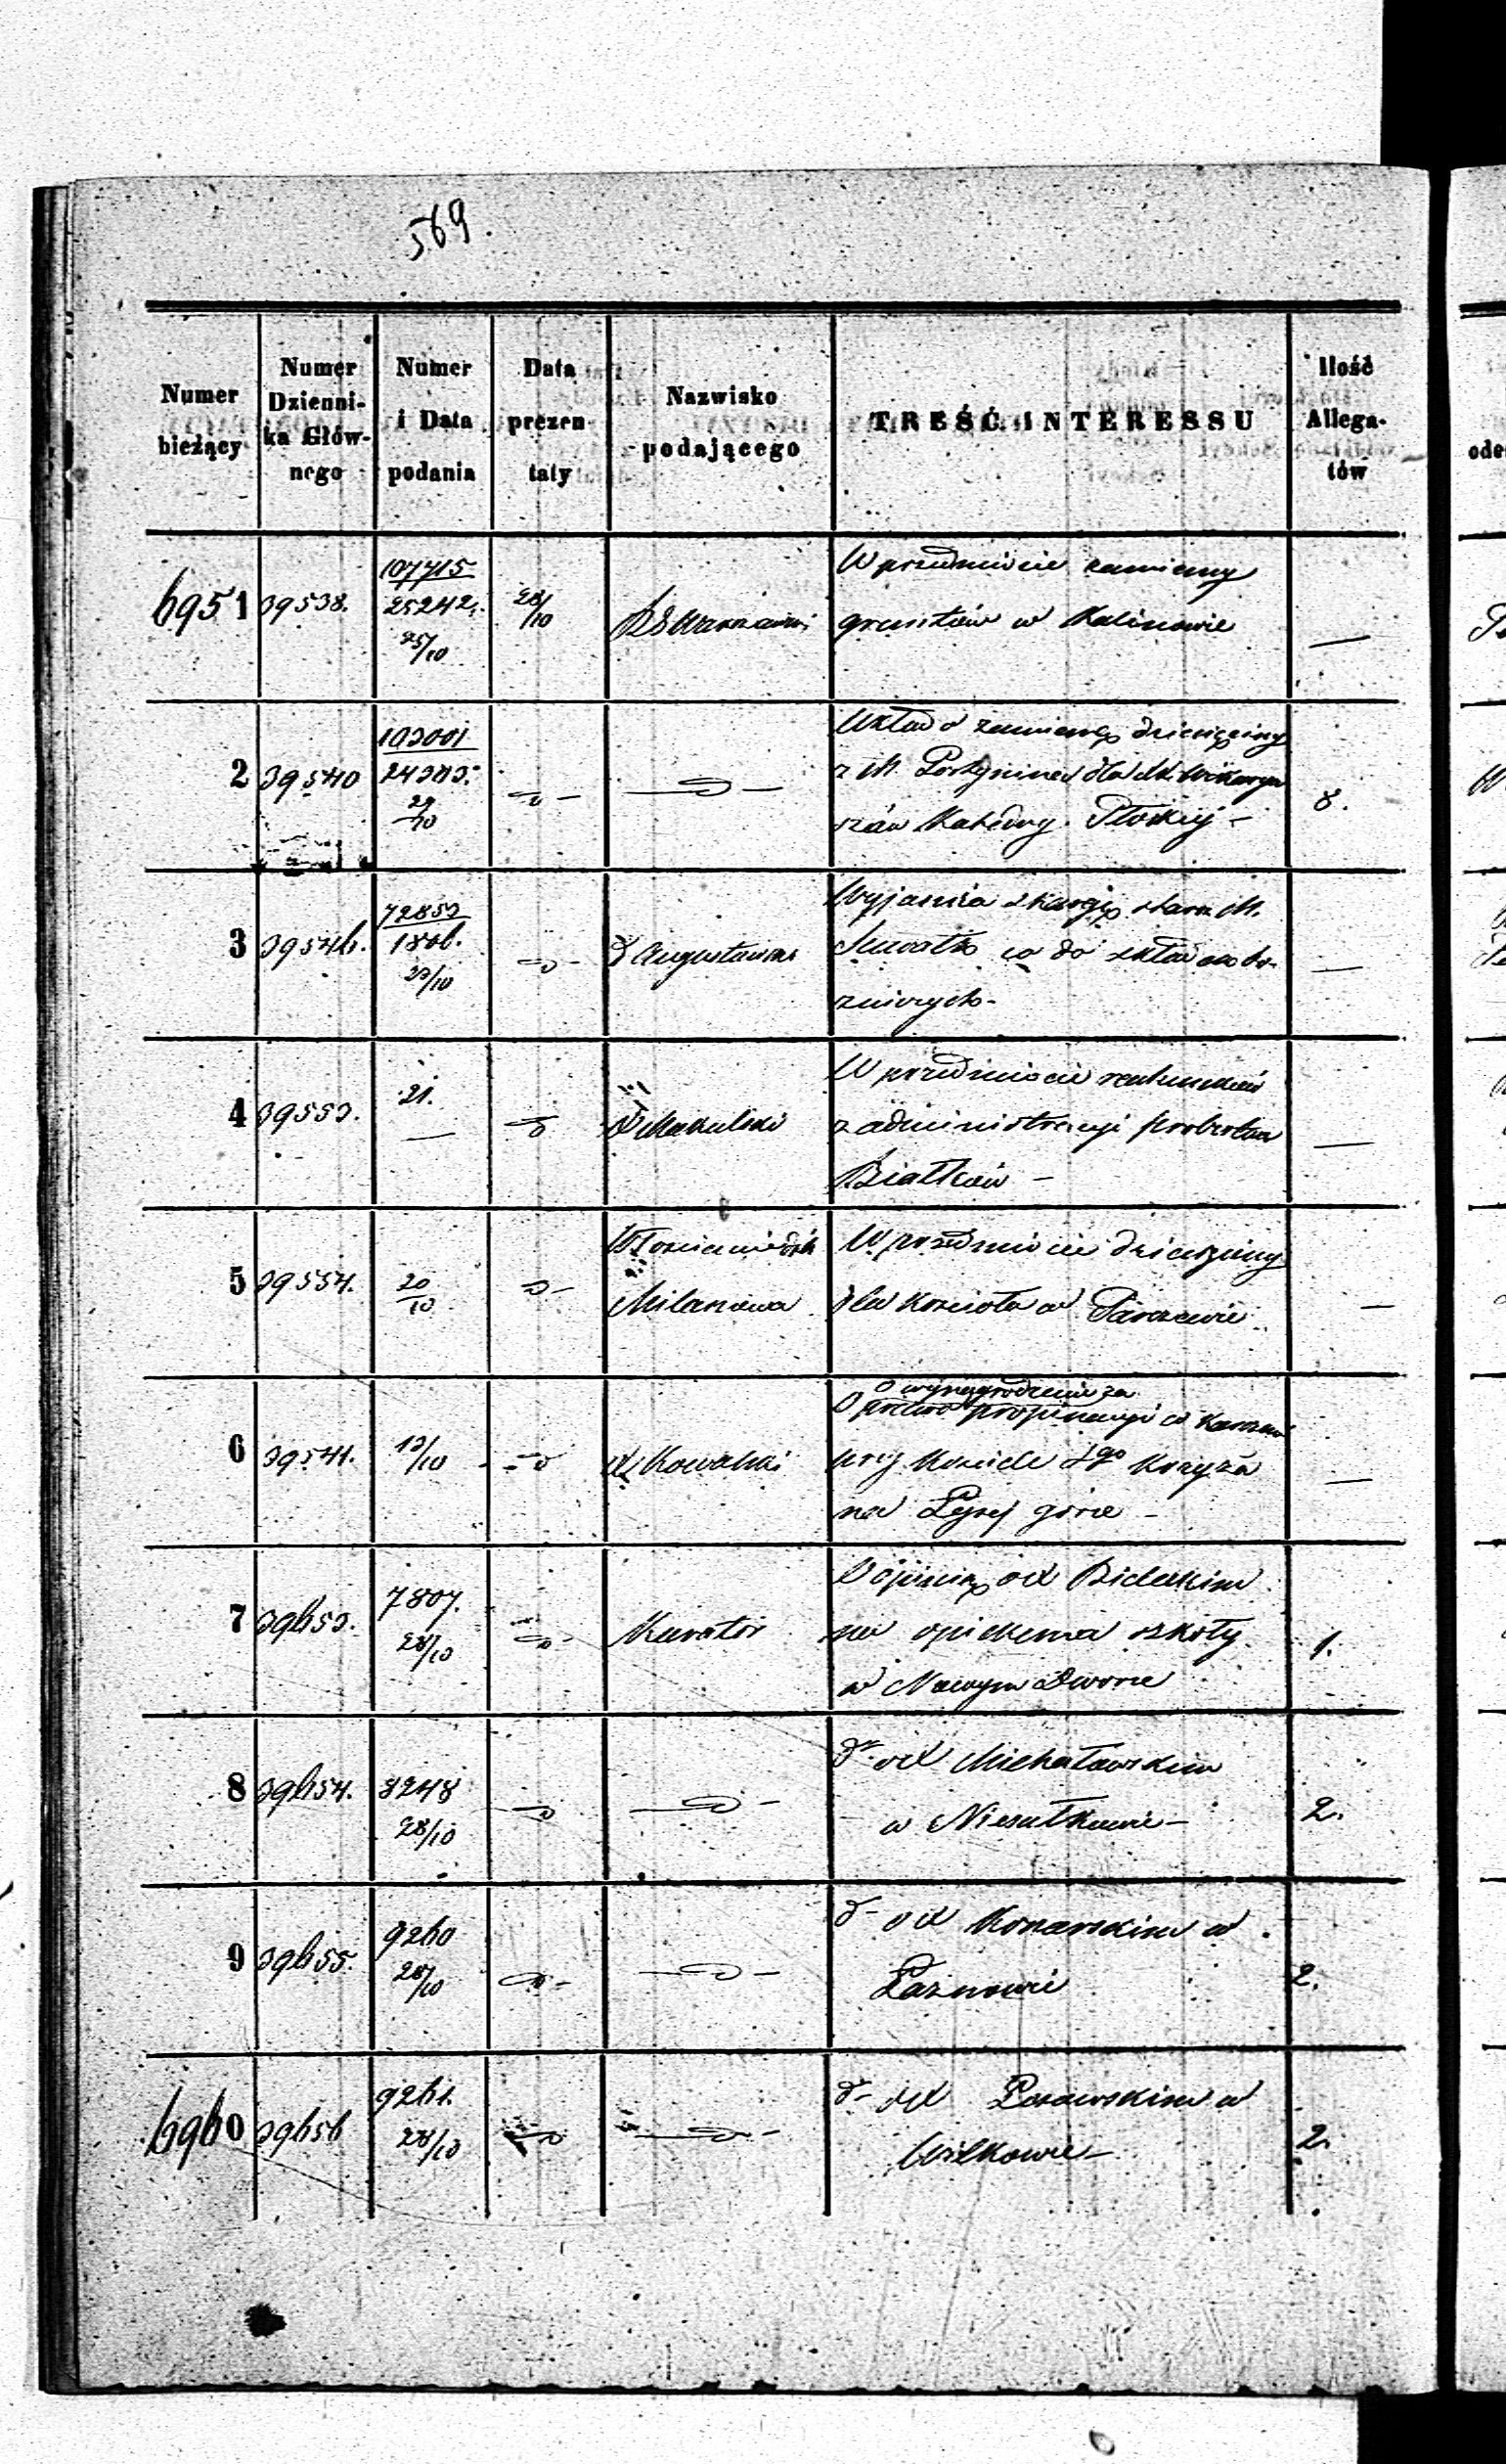 569.
Numer bieżący
Numer Dzienni- ka Głów- nego
Numer i Data podania
Data prezen- taty
Nazwisko podającego
TREŚĆ INTERESSU
Ilość Allega- tów
6951 39538. 107715 25242. 25/10 28/10
W przedmiocie zamiany
gruntów w Kalinowie —
2 39540 103001 24383. 29/10 — 8.
Układ o zamianę dziesięciny
z M. dla
Katedry Płockiej –
3 39546. 72853 1806. 23/10 Augustowski
Wyjaśnia skargę starz. M.
Suwałk co do
—
4 39553. 21. — Makulski
W przedmiocie
z administracyi probostwa
Białków — —
5 39554. 20/10 Milanowa
W przedmiocie dziesięciny
dla kościoła w Parczewie. —
6 39541. 13/10 X Kowalski
O wynagrodzenie za
prawo propinacyi w
przy kościele Sgo Krzyża
na Łysej górze – —
7 39653. 7807. 28/10 Kurator
O opinią od Bielskim
na opiekuna szkoły
w Nowym Dworze 1.
8 39654. 8248 28/10
dto od Michałowskim
w Niesułkowie – 2.
9 39655. 9260 28/10
d– od Konarskim w
Łaznowie 2.
6960 39656 9261. 28/10
d– od w
Wilkowie – 2.